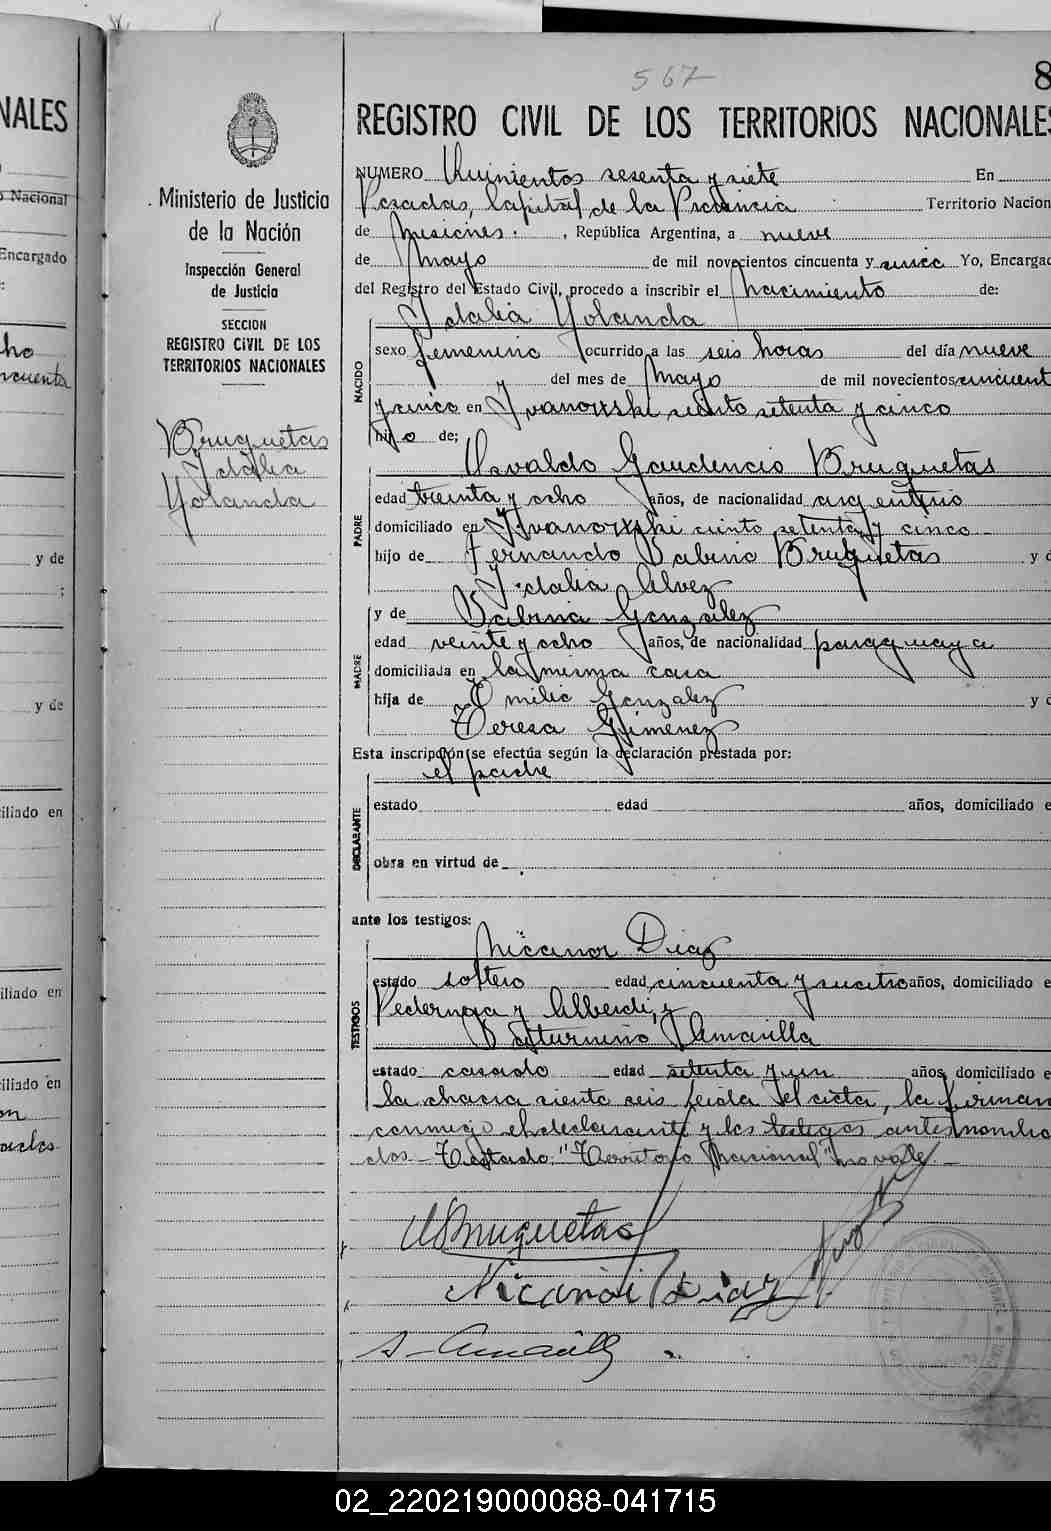 NALES
o Nacional
Encargado
:
ho
ncuenta
y de
;
y de
iliado en
iliado en
iliado en
567
8
Ministerio de Justicia
de la Nación
Inspección General
de Justicia
SECCION
REGISTRO CIVIL DE LOS
TERRITORIOS NACIONALES
Bruquetas
Idalia
Yolanda
REGISTRO CIVIL DE LOS TERRITORIOS NACIONALES
NUMERO Quinientos sesenta y siete En
Posadas, Capital de la Provincia Territorio Nacion
de Misiones. , República Argentina, a nueve
de Mayo de mil novecientos cincuenta y cinco Yo, Encargad
del Registro del Estado Civil, procedo a inscribir el Nacimiento de:
Idalia Yolanda
NACIDO
sexo femenino ocurrido a las seis horas del día nueve
del mes de Mayo de mil novecientos cincuent
y cinco en Ivanowski ciento setenta y cinco
hijo de;
PADRE
Osvaldo Gaudencio Bruquetas
edad treinta y ocho años, de nacionalidad argentino
domiciliado en Ivanowski ciento setenta y cinco
hijo de Fernando Sabino Bruquetas y d
Idalia Alvez
MADRE
y de Sabina Gonzalez
edad veinte y ocho años, de nacionalidad paraguaya
domiciliada en la misma casa
hija de Emilio Gonzalez y d
Teresa Gimenez
Esta inscripción se efectúa según la declaración prestada por:
el padre
DECLARANTE
estado edad años, domiciliado e
obra en virtud de
ante los testigos:
TESTIGOS
Nicanor Diaz
estado soltero edad cincuenta y cuatro años, domiciliado e
Pedernera y Alberdi, y
Saturnino Amarilla
estado casado edad setenta y un años, domiciliado e
la chacra ciento seis Leida el acta, la firman
conmigo el declarante y los testigos antes nombra
dos - Testado: "Territorio Nacional" no vale. -
O Bruquetas
Nicanor Diaz
S. Amarilla
02_220219000088-041715